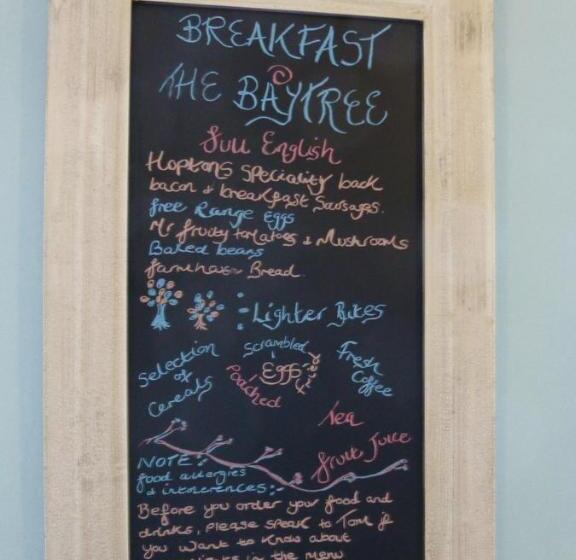 BREAKFAST
@
THE BAYTREE
full English
Hoptons Speciality back
bacon & breakfast Sausages.
free Range Eggs
Mr fruity tomatoes & Mushrooms
Baked beans
farmhouse Bread.
Lighter Bites
Selection
of
Cereals
Scrambled
Eggs
Poached
fried
Fresh
Coffee
Tea
fruit Juice
NOTE:-
food allergies
& intolerences:-
Before you order your food and
drinks, please speak to Tom if
you want to know about
in the menu